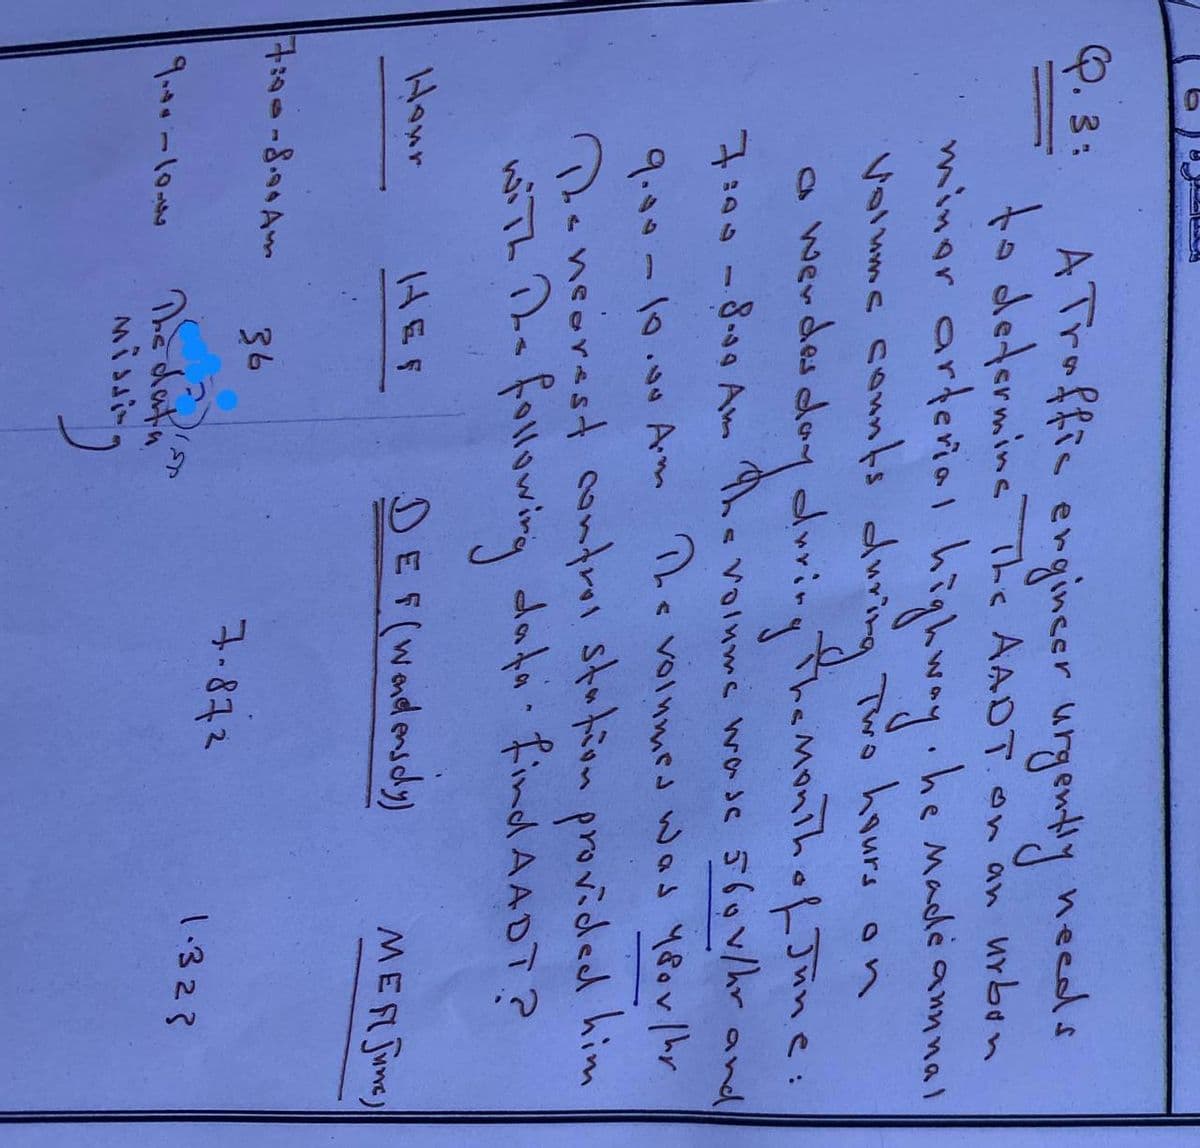 Q. 3: A Traffic engineer urgently needs
to determine The AADT. on an urban
minor arterial highway. he made annual
volume counts during Two hours on
a wendesday during the Month of June:
7:00 - 8:00 Am the volume wase 560 v/hr and
9.00 - 10.00 Am The volumes was 480 v/hr
The neorest control station provided him
with The following data. find AADT?
Hour HEF DEF (wendensdy) MEF(June)
7:00 - 8.00 Am 36
7.872
1.328
9.00 - 10.00 The data is
missing